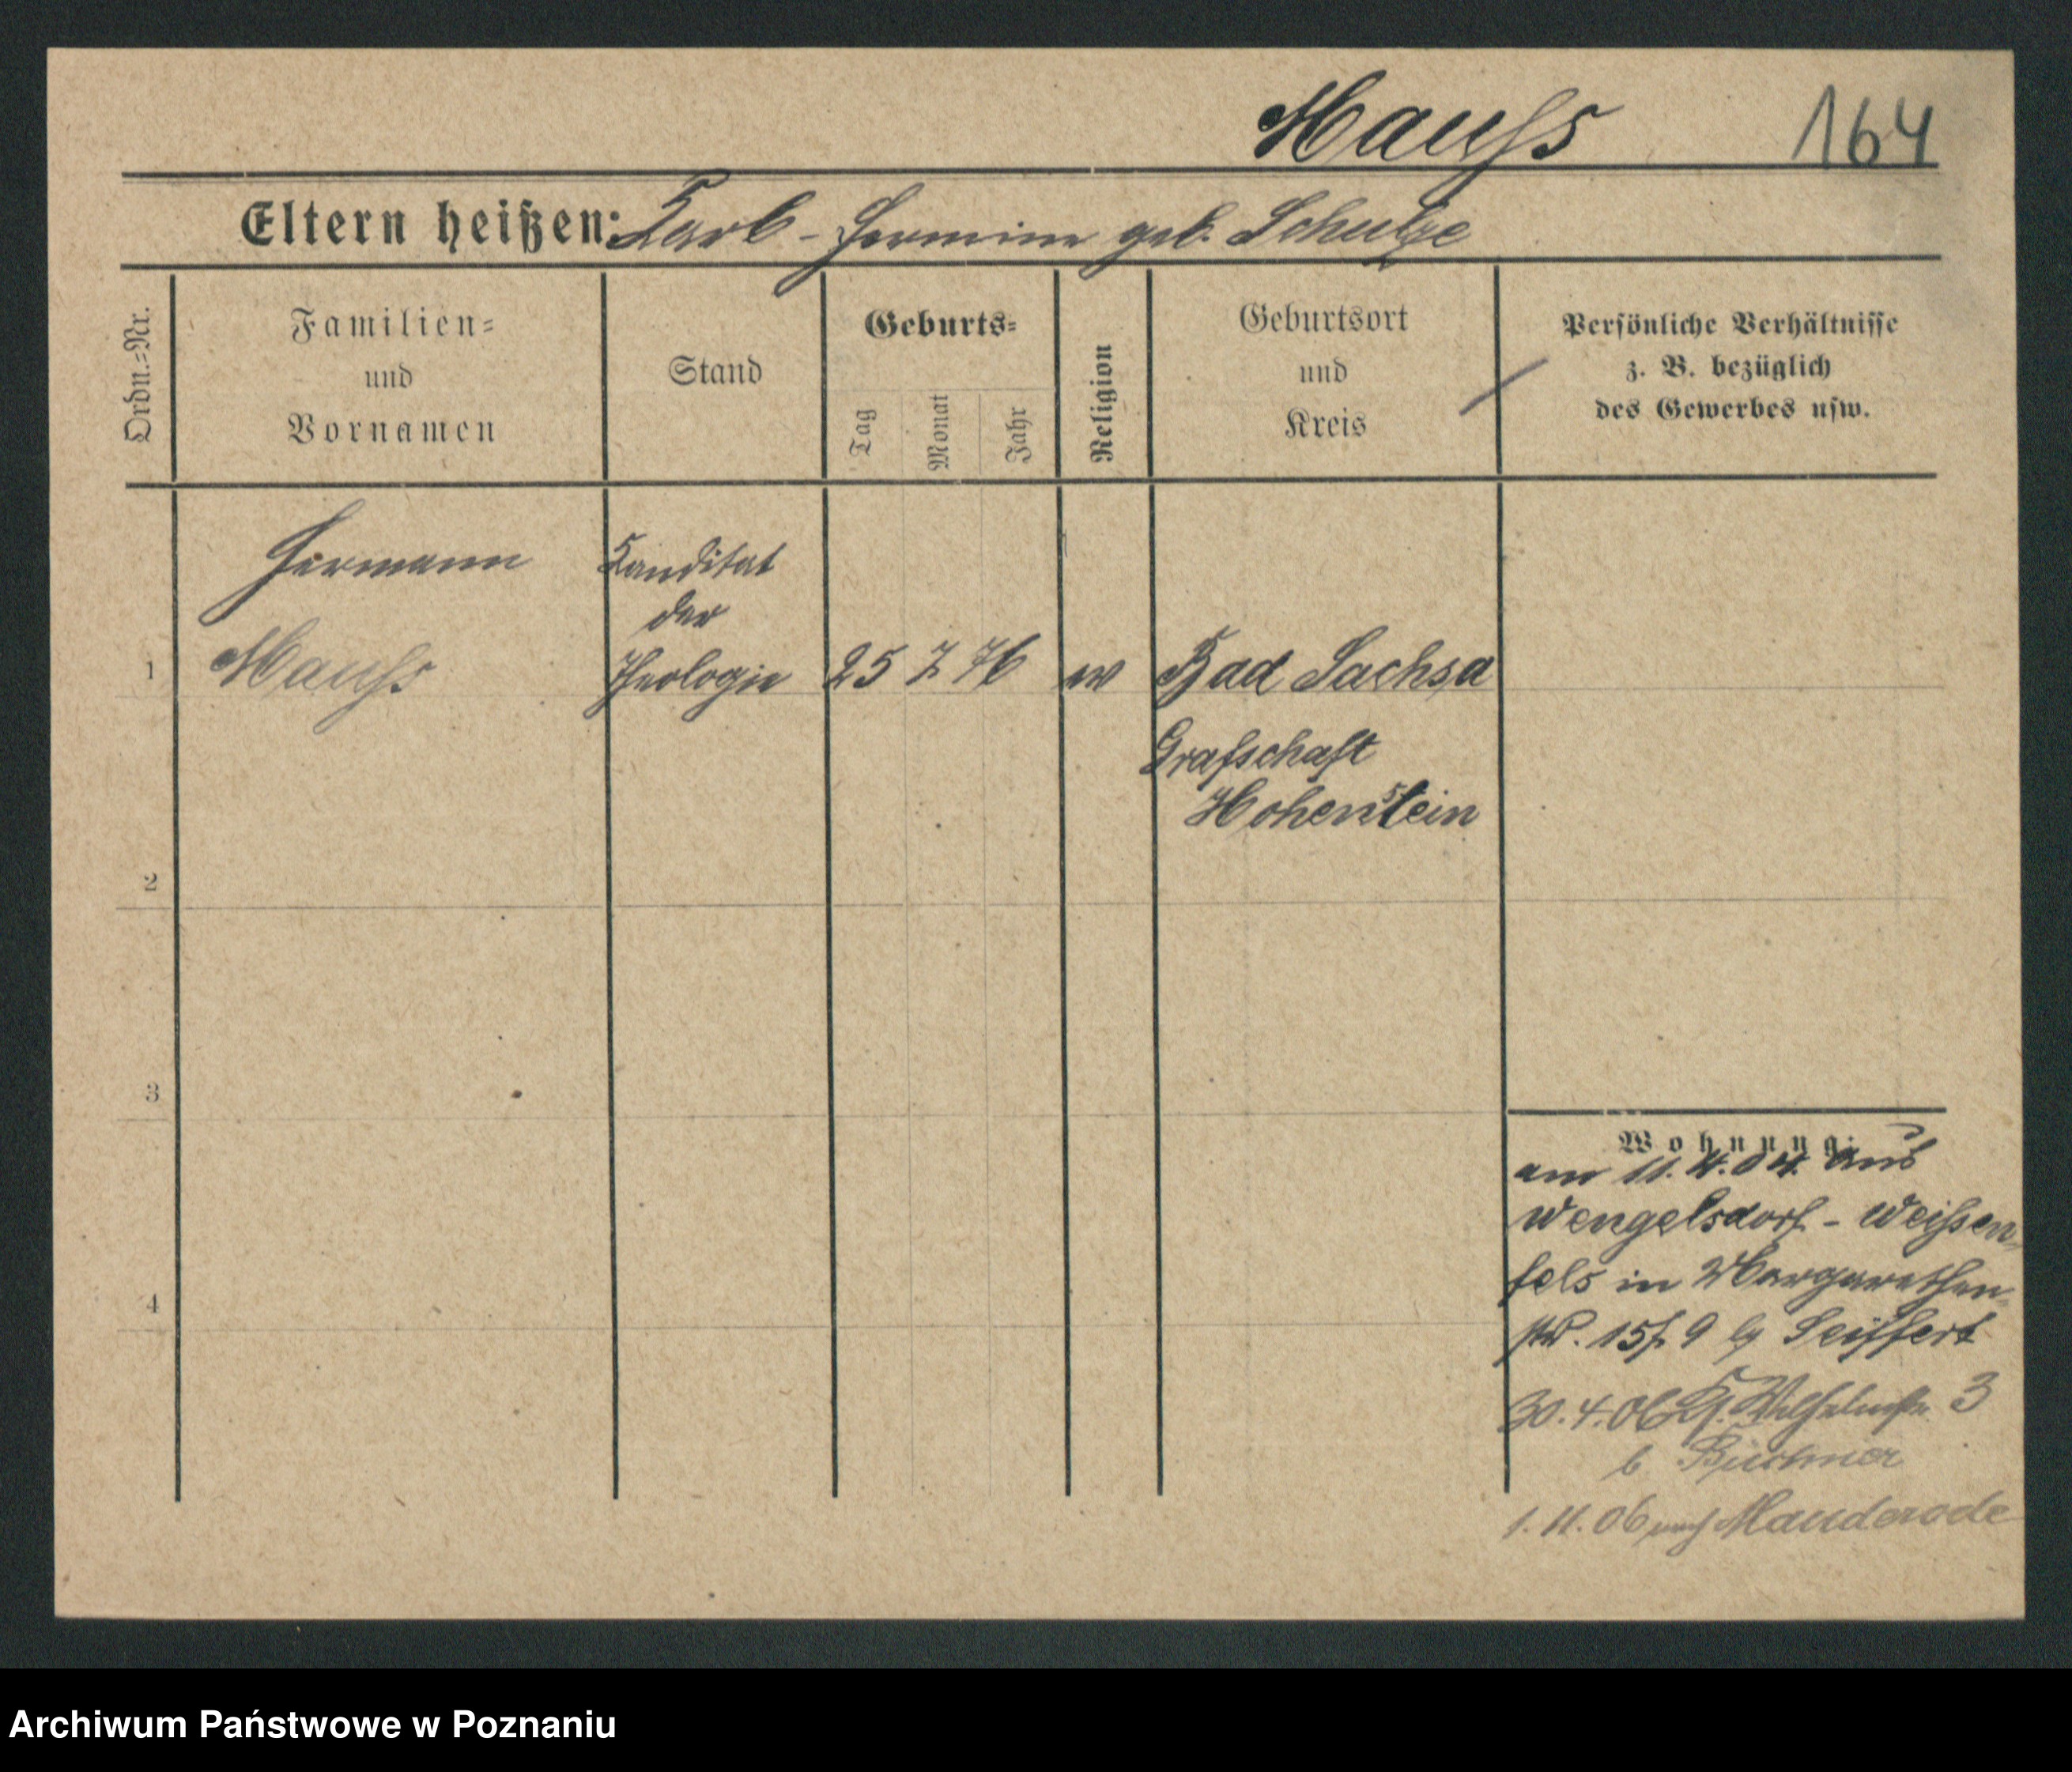 Mauſs 164
Eltern heißen: Karl - Hermine geb. Schulze
Ordn.=Nr.
Familien=
und
Vornamen
Stand
Geburts=
Tag
Monat
Jahr
Religion
Geburtsort
und
Kreis
Persönliche Verhältnisse
z. B. bezüglich
des Gewerbes usw.
Hermann
Kanditat
der
1 Mauſs Theologie 25 7 76 ev Bad Sachsa
Grafschaft
Hohenstein
2
3
4
Wohnung:
am 11.4.04. aus
Wengelsdorf - Weiſsen-
fels in Margarethen-
str. 15 9 Seiffert
30.4.06 Kl. Wilhelmstr. 3
b Büchner
1.11.06 nach Mauderode
Archiwum Państwowe w Poznaniu